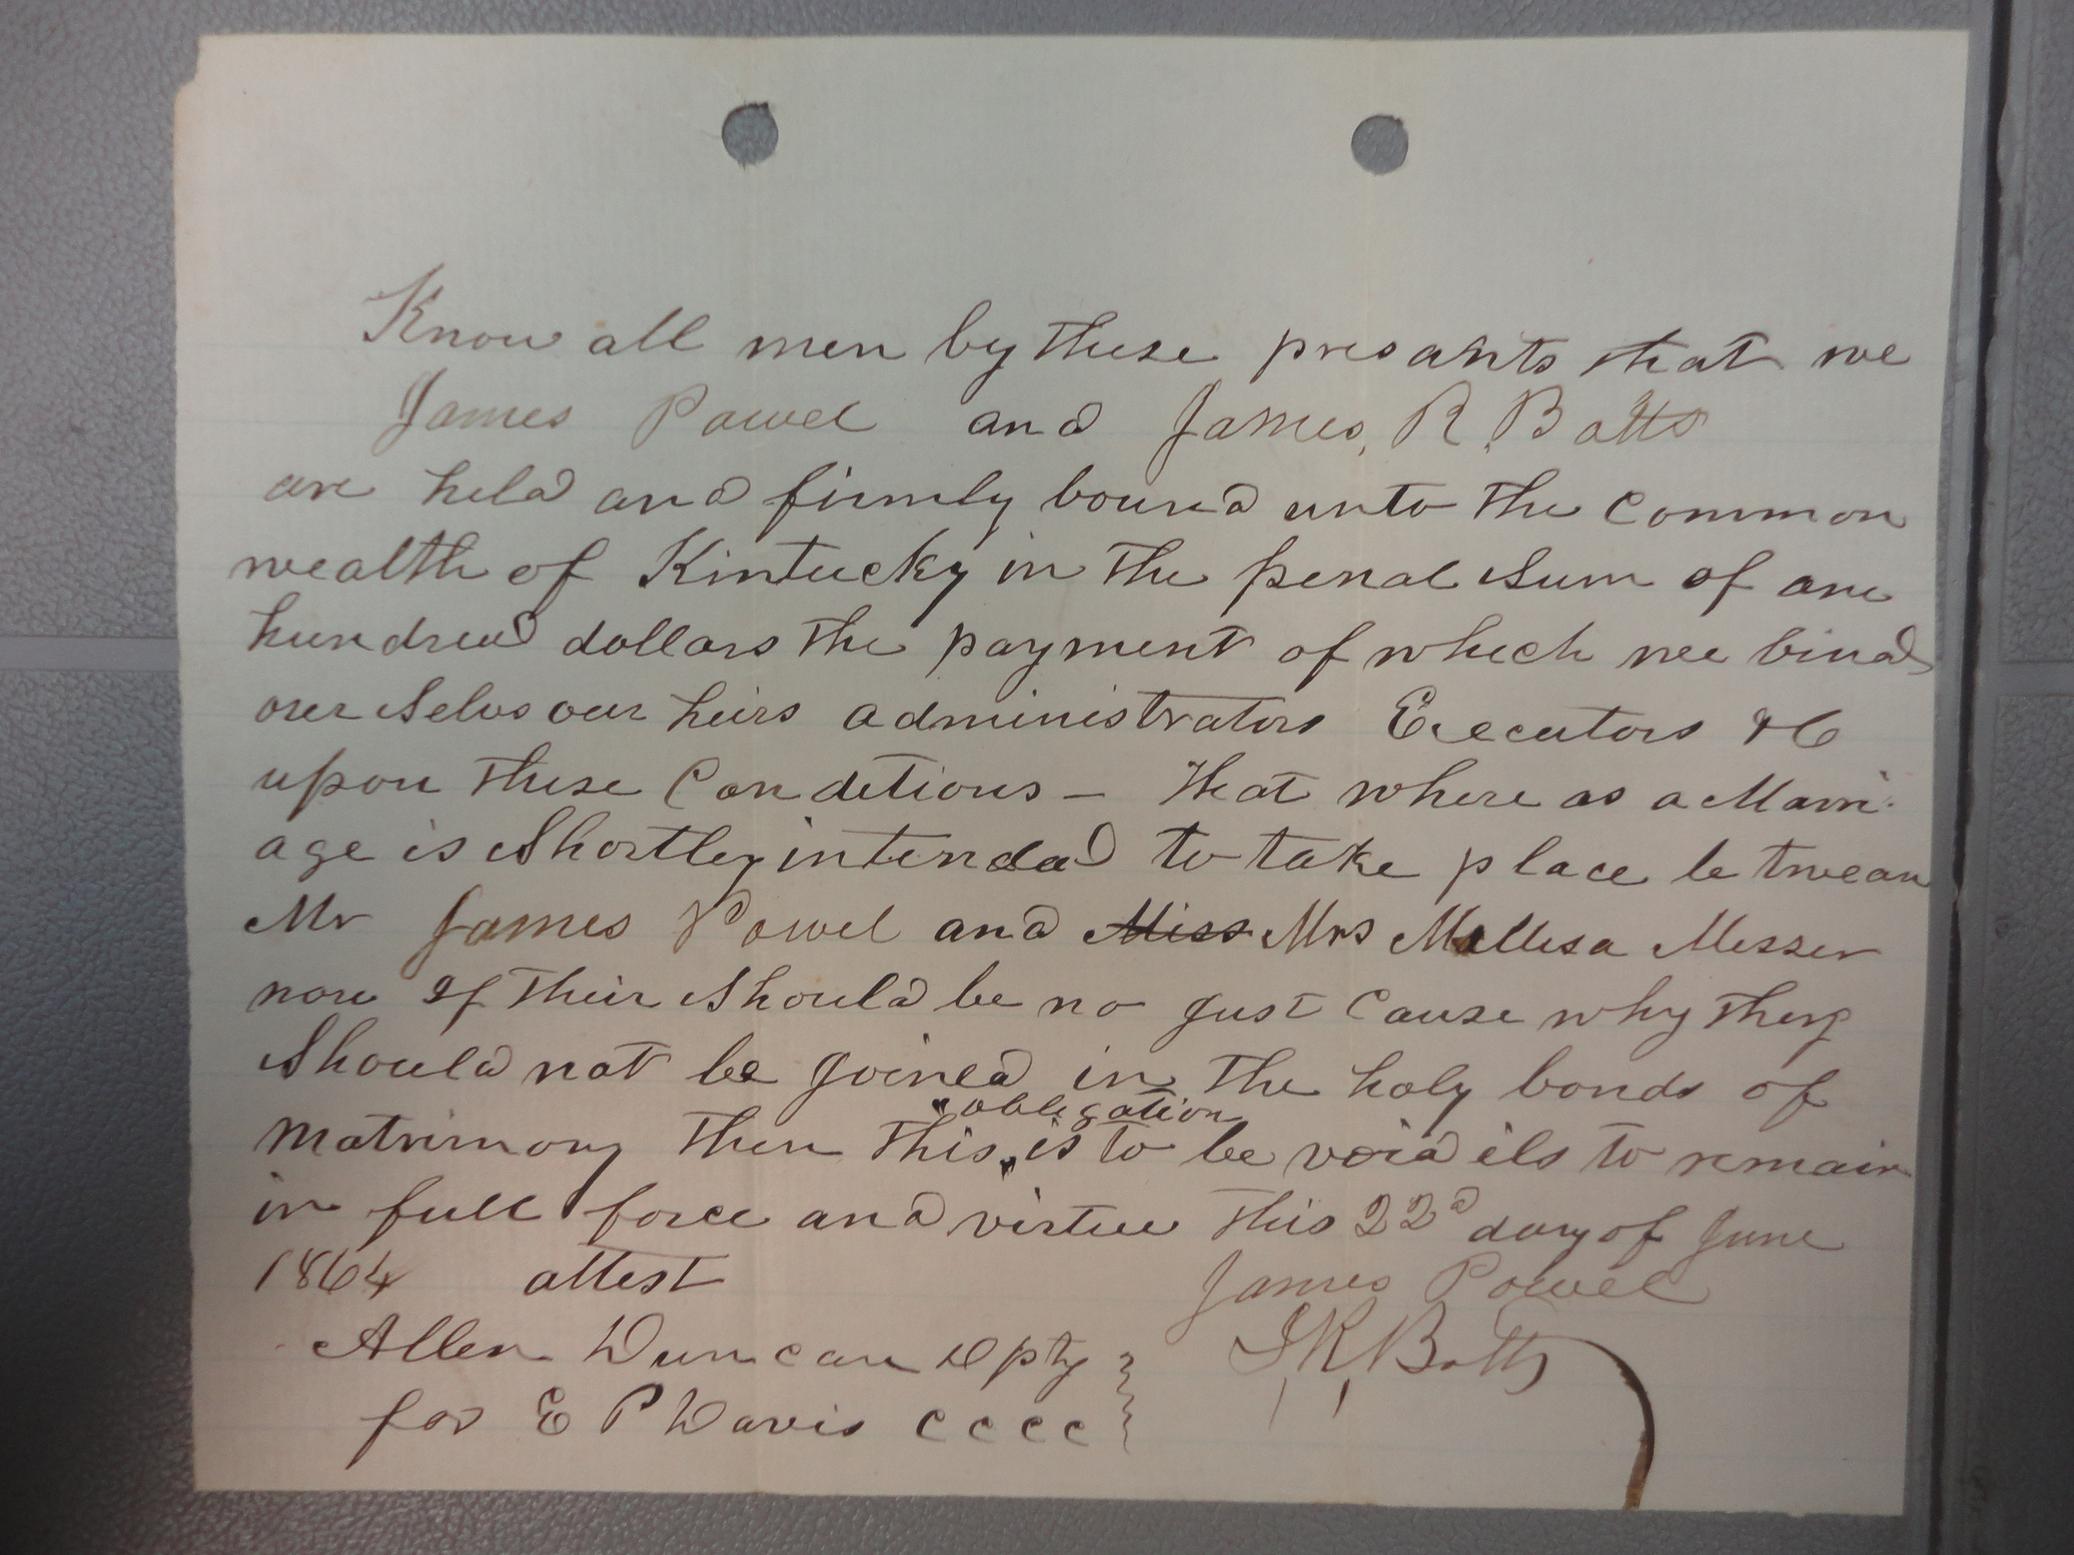 Know all men by these presants that we
James Powel and James, R, Botts
are held and firmly bound unto the Common
wealth of Kintucky in the penal sum of one
hundred dollars the payment of which we bind
our selvs our heirs administrators Executors &C
upon these Conditions – that where as a Marri-
age is shortley intended to take place be twean
Mr James Powel and Miss Mrs Mellisa Messer
now if their should be no just Cause why they
should not be joined in the holy bonds of
obligation
matrimony then this is to be void els to remain
in full force and virtue this 22d day of June
1864 attest James Powel
Allen Duncan Dpty J, R, Botts
for E P Davis CCCC